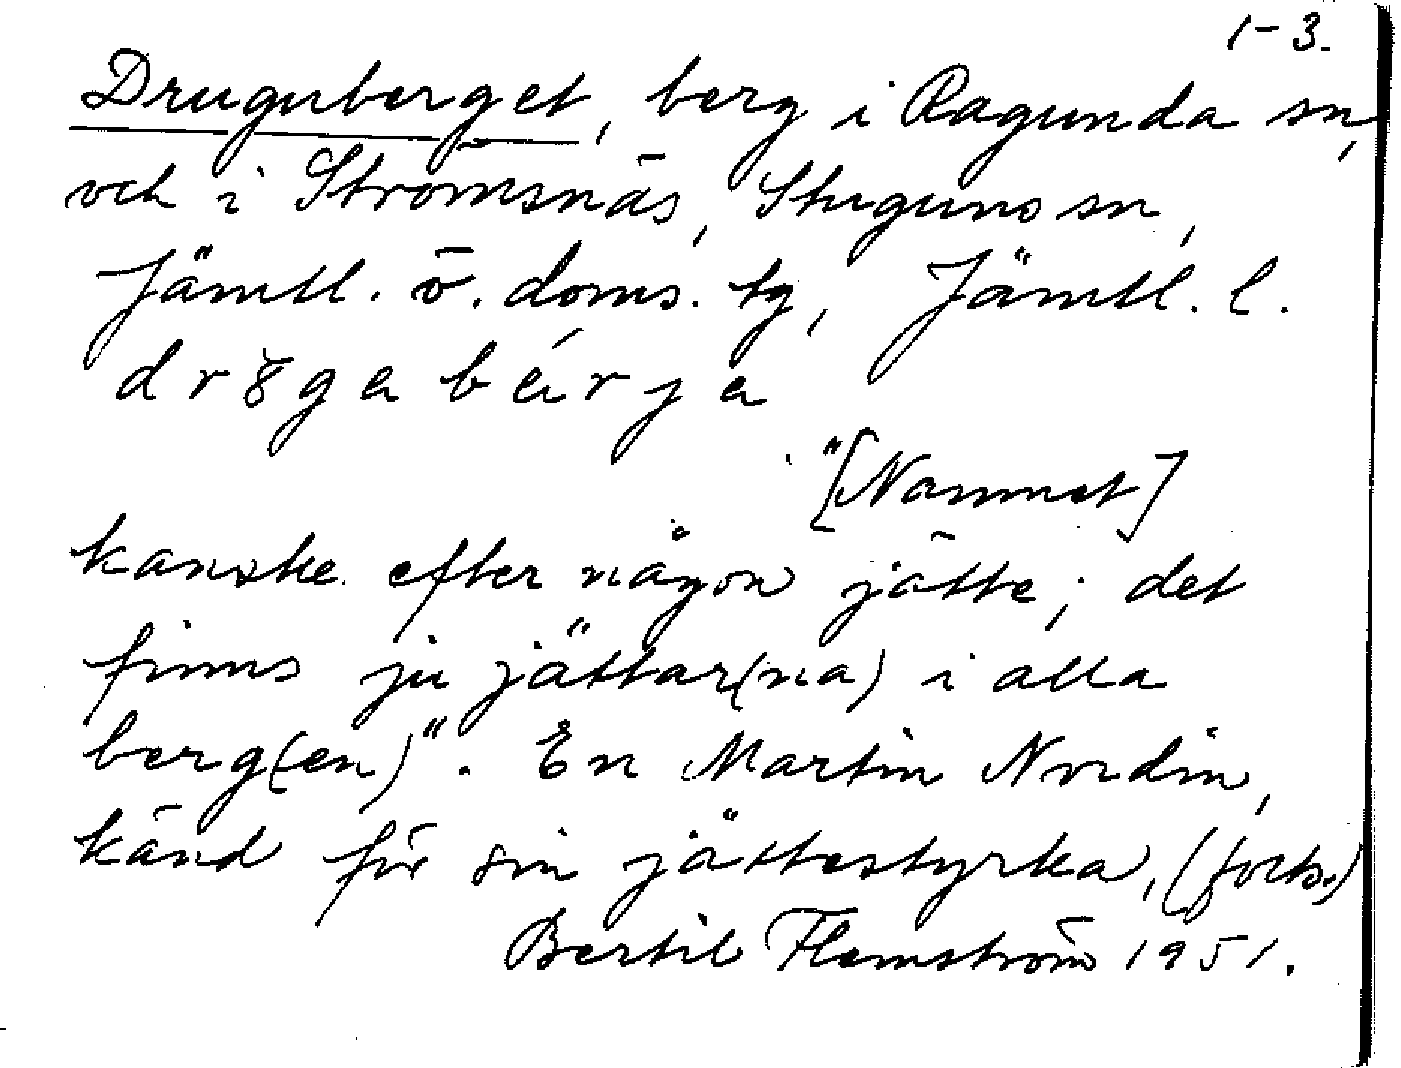 1-3.
Druguberget, berg i Ragunda sn,
och i Strömsnäs, Stuguns sn,
Jämtl. ö. doms. tg, Jämtl. l.
drȣgabärja
"[Namnet]
kanske efter någon jätte; det
finns ju jättar(na) i alla
berg(en)". En Martin Nordin,
känd för sin jättestyrka, (forts.)
Bertil Flemström 1951.